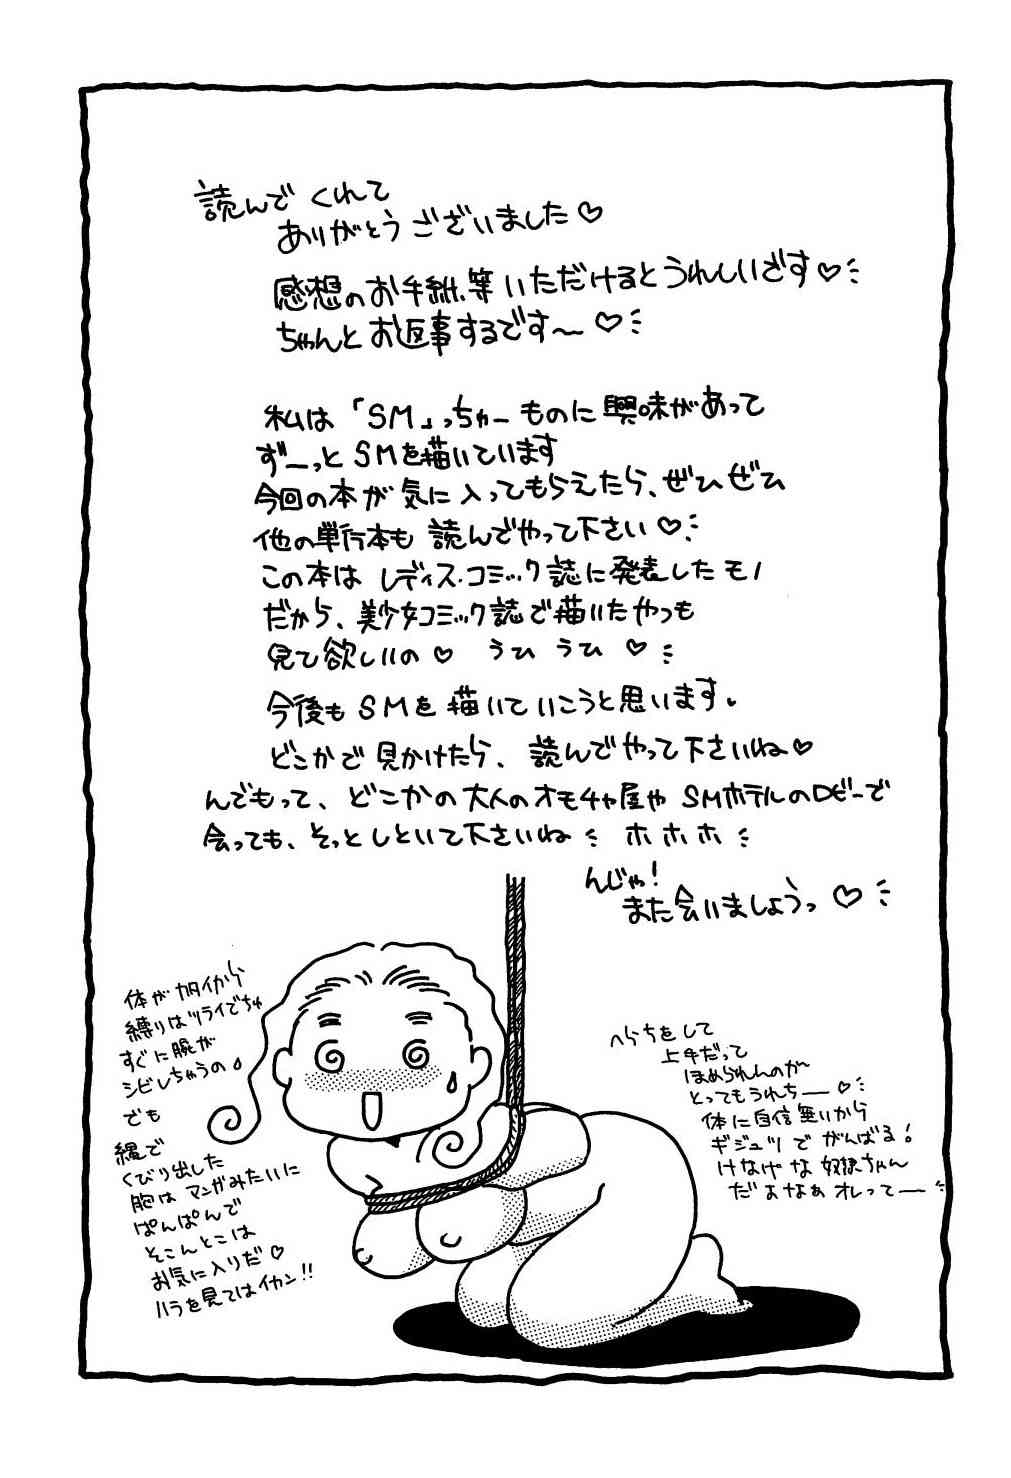 読んでくれて
ありがとうございました♡
感想のお手紙、等いただけるとうれしいです♡
ちゃんとお返事するです〜♡
私は「SM」っちゅーものに興味があって
ずーっとSMを描いています
今回の本が気に入ってもらえたら、ぜひぜひ
他の単行本も読んでやって下さい♡
この本はレディス・コミック誌に発表したモノ
だから、美少女コミック誌で描いたやつも
見て欲しいの♡ うひうひ♡
今後もSMを描いていこうと思います。
どこかで見かけたら、読んでやって下さいね♡
んでもって、どこかの大人のオモチャ屋やSMホテルのロビーで
会っても、そっとしといて下さいね ホホホ
んじゃ!
また会いましょうっ♡
体がカタイから
縛りはツライでちゅ
すぐに腕が
シビレちゃうの
でも
縄で
くびり出した
胸はマンガみたいに
ぱんぱんで
そこんとこは
お気に入りだ♡
ハラを見てはイカン!!
へらちをして
上手だって
ほめられんのが
とってもうれちー♡
体に自信無いから
ギジュツでがんばる!
けなげな奴隷ちゃん
だよなぁオレってー